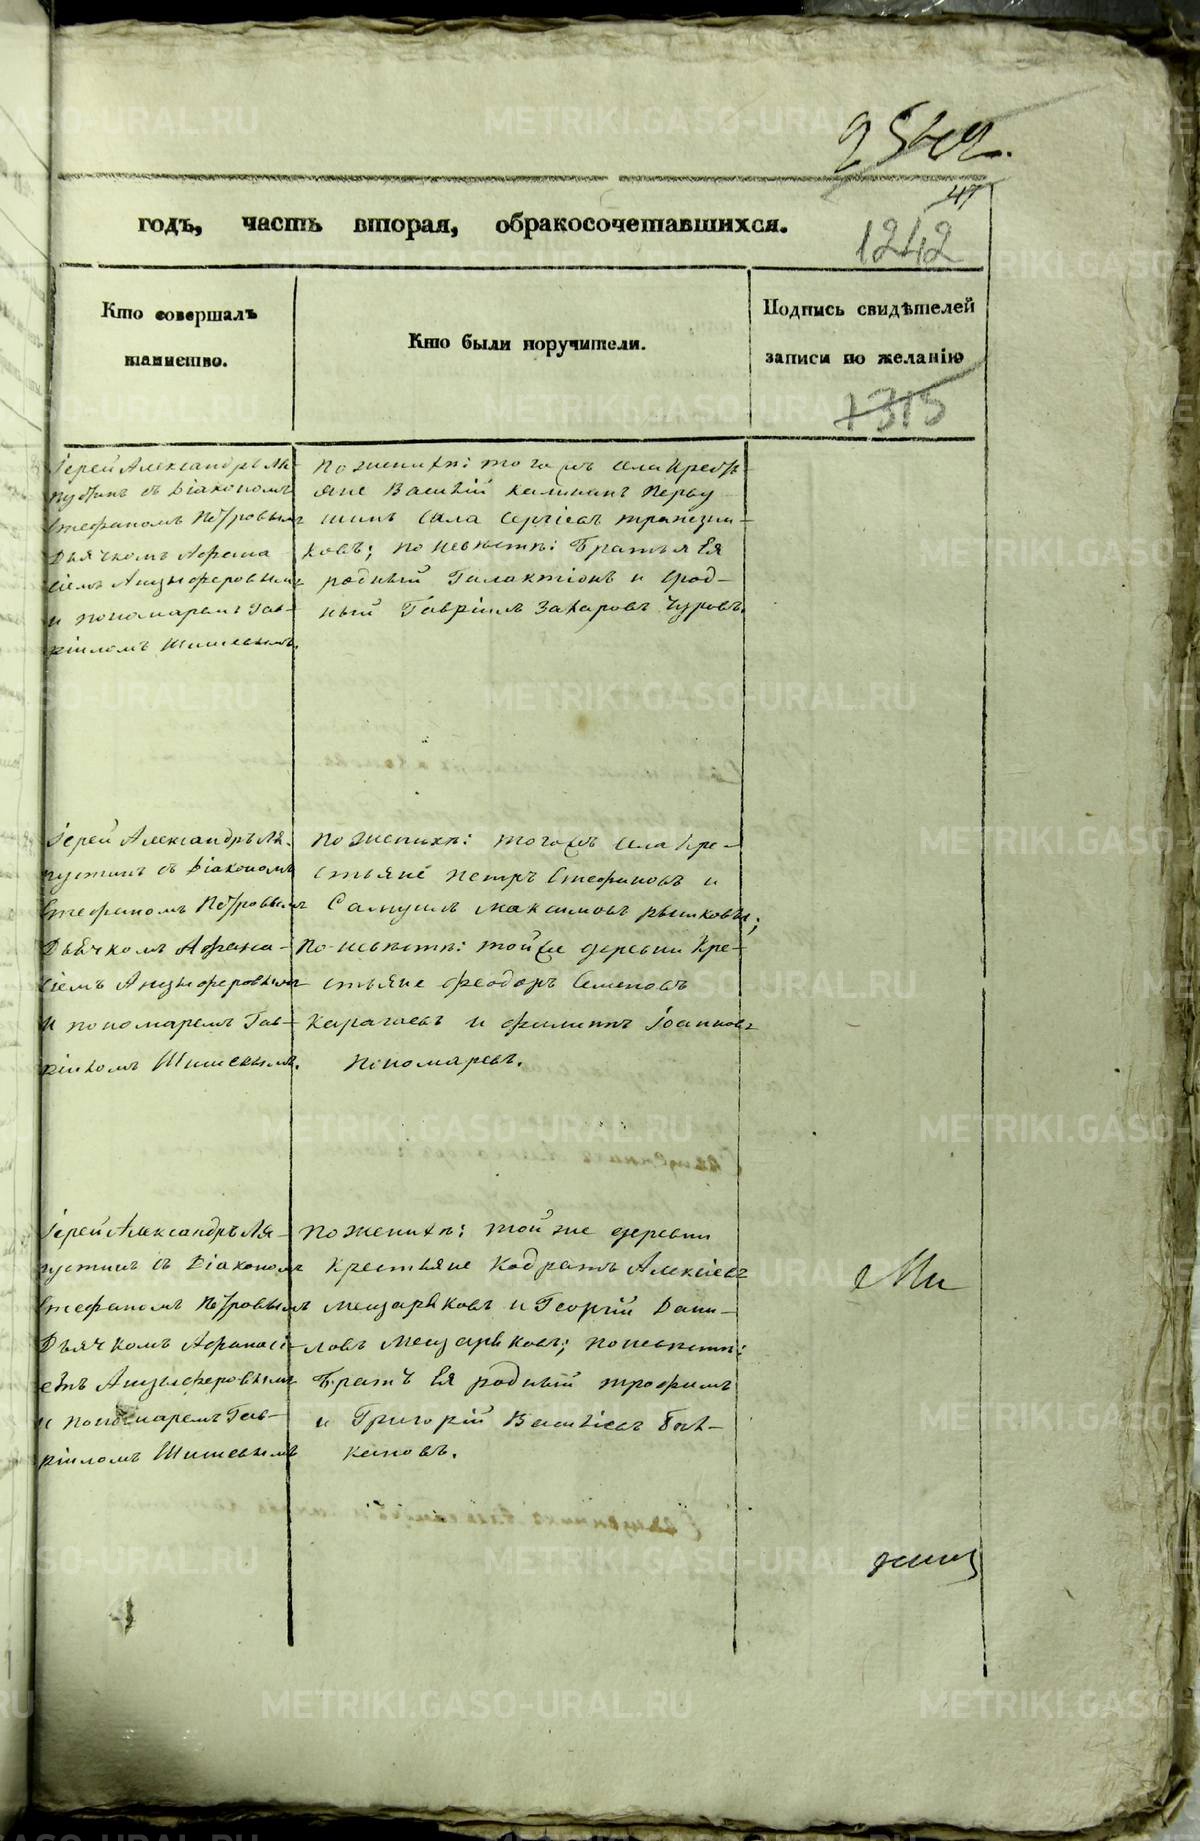 47
годъ, часть вторая, обракосочетавшихся.
1242
Кто совершалъ
таинство.
Кто были поручители.
Подпись свидѣтелей
записи по желанію
1315
Іерей Александръ Ля-
пустинъ съ Діакономъ
Стефаномъ Петровымъ
Дьячкомъ Афана-
сіемъ Анцыферовымъ
и пономаремъ Гав-
ріиломъ Шишевымъ.
По женихѣ: того жъ села Кресть-
яне Василій
Сергіевъ Трапезни-
ковъ; по невѣстѣ: Братья Ея
родный Галактіонъ и срод-
ный Гавріилъ Захаровъ Чуровъ.
Іерей Александръ Ля-
пустинъ съ Діакономъ
Стефаномъ Петровымъ
Дьячкомъ Афана-
сіемъ Анцыферовымъ
и пономаремъ Гав-
ріиломъ Шишевымъ.
По женихѣ: того же села Кре-
стьяне Петръ Стефановъ и
Самуилъ Максимовъ Рышковы;
По невѣстѣ: той же деревни Кре-
стьяне Феодоръ Семеновъ
Карагаевъ и Филиппъ Іоанновъ
Пономаревъ.
Іерей Александръ Ля-
пустинъ съ Діакономъ
Стефаномъ Петровымъ
Дьячкомъ Афанасі-
емъ Анцыферовымъ
и пономаремъ Гав-
ріиломъ Шишевымъ
По женихѣ: той же деревни
Крестьяне Кодратъ Алексіевъ
Мещаряковъ и Георгій Дани-
ловъ Мещаряковъ; по невѣстѣ:
Братъ Ея родный Трофимъ
и Григорій Васильевъ Бал-
кановъ.
METRIKI.GASO-URAL.RU